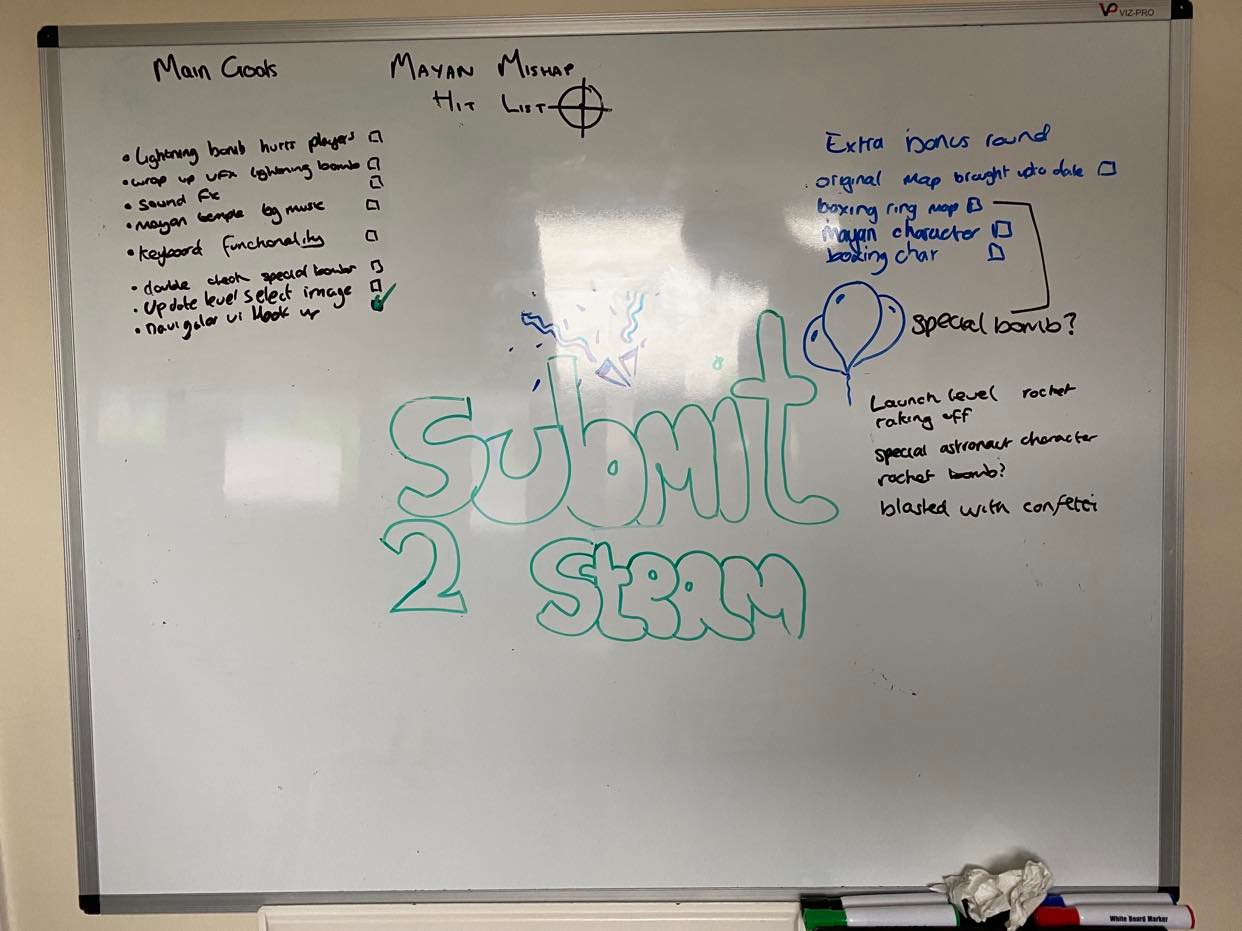 VP VIZ-PRO
Main Goals
MAYAN MISHAP
HIT LIST
• Lightning bomb hurts players
• wrap up VFX lightning bomb
• Sound FX
• Mayan temple bg music
• Keyboard functionality
• double check special bombs
• Update level select image
• navigator ui Hook up
Extra bonus round
original map brought upto date
boxing ring map
mayan character
boxing char
special bomb?
Launch level rocket
taking off
special astronaut character
rocket bomb?
blasted with confetti
Submit
2 Steam
White Board Marker